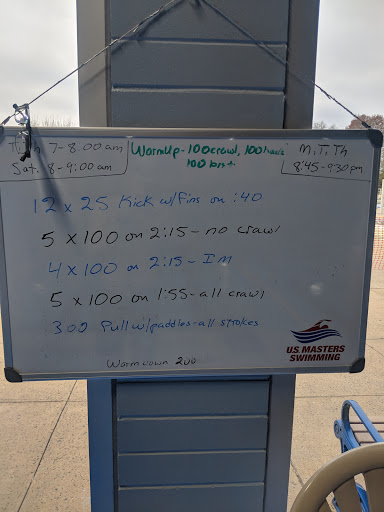 7-8:00am
Sat. 8-9:00am
WarmUp-100crawl, 100back
100brst.
M,T,Th
8:45-9:30pm
12 x 25 Kick w/Fins on :40
5 x 100 on 2:15-no crawl
4 x 100 on 2:15-IM
5 x 100 on 1:55-all crawl
300 Pull w/paddles-all strokes
Warmdown 200
U.S. MASTERS
SWIMMING